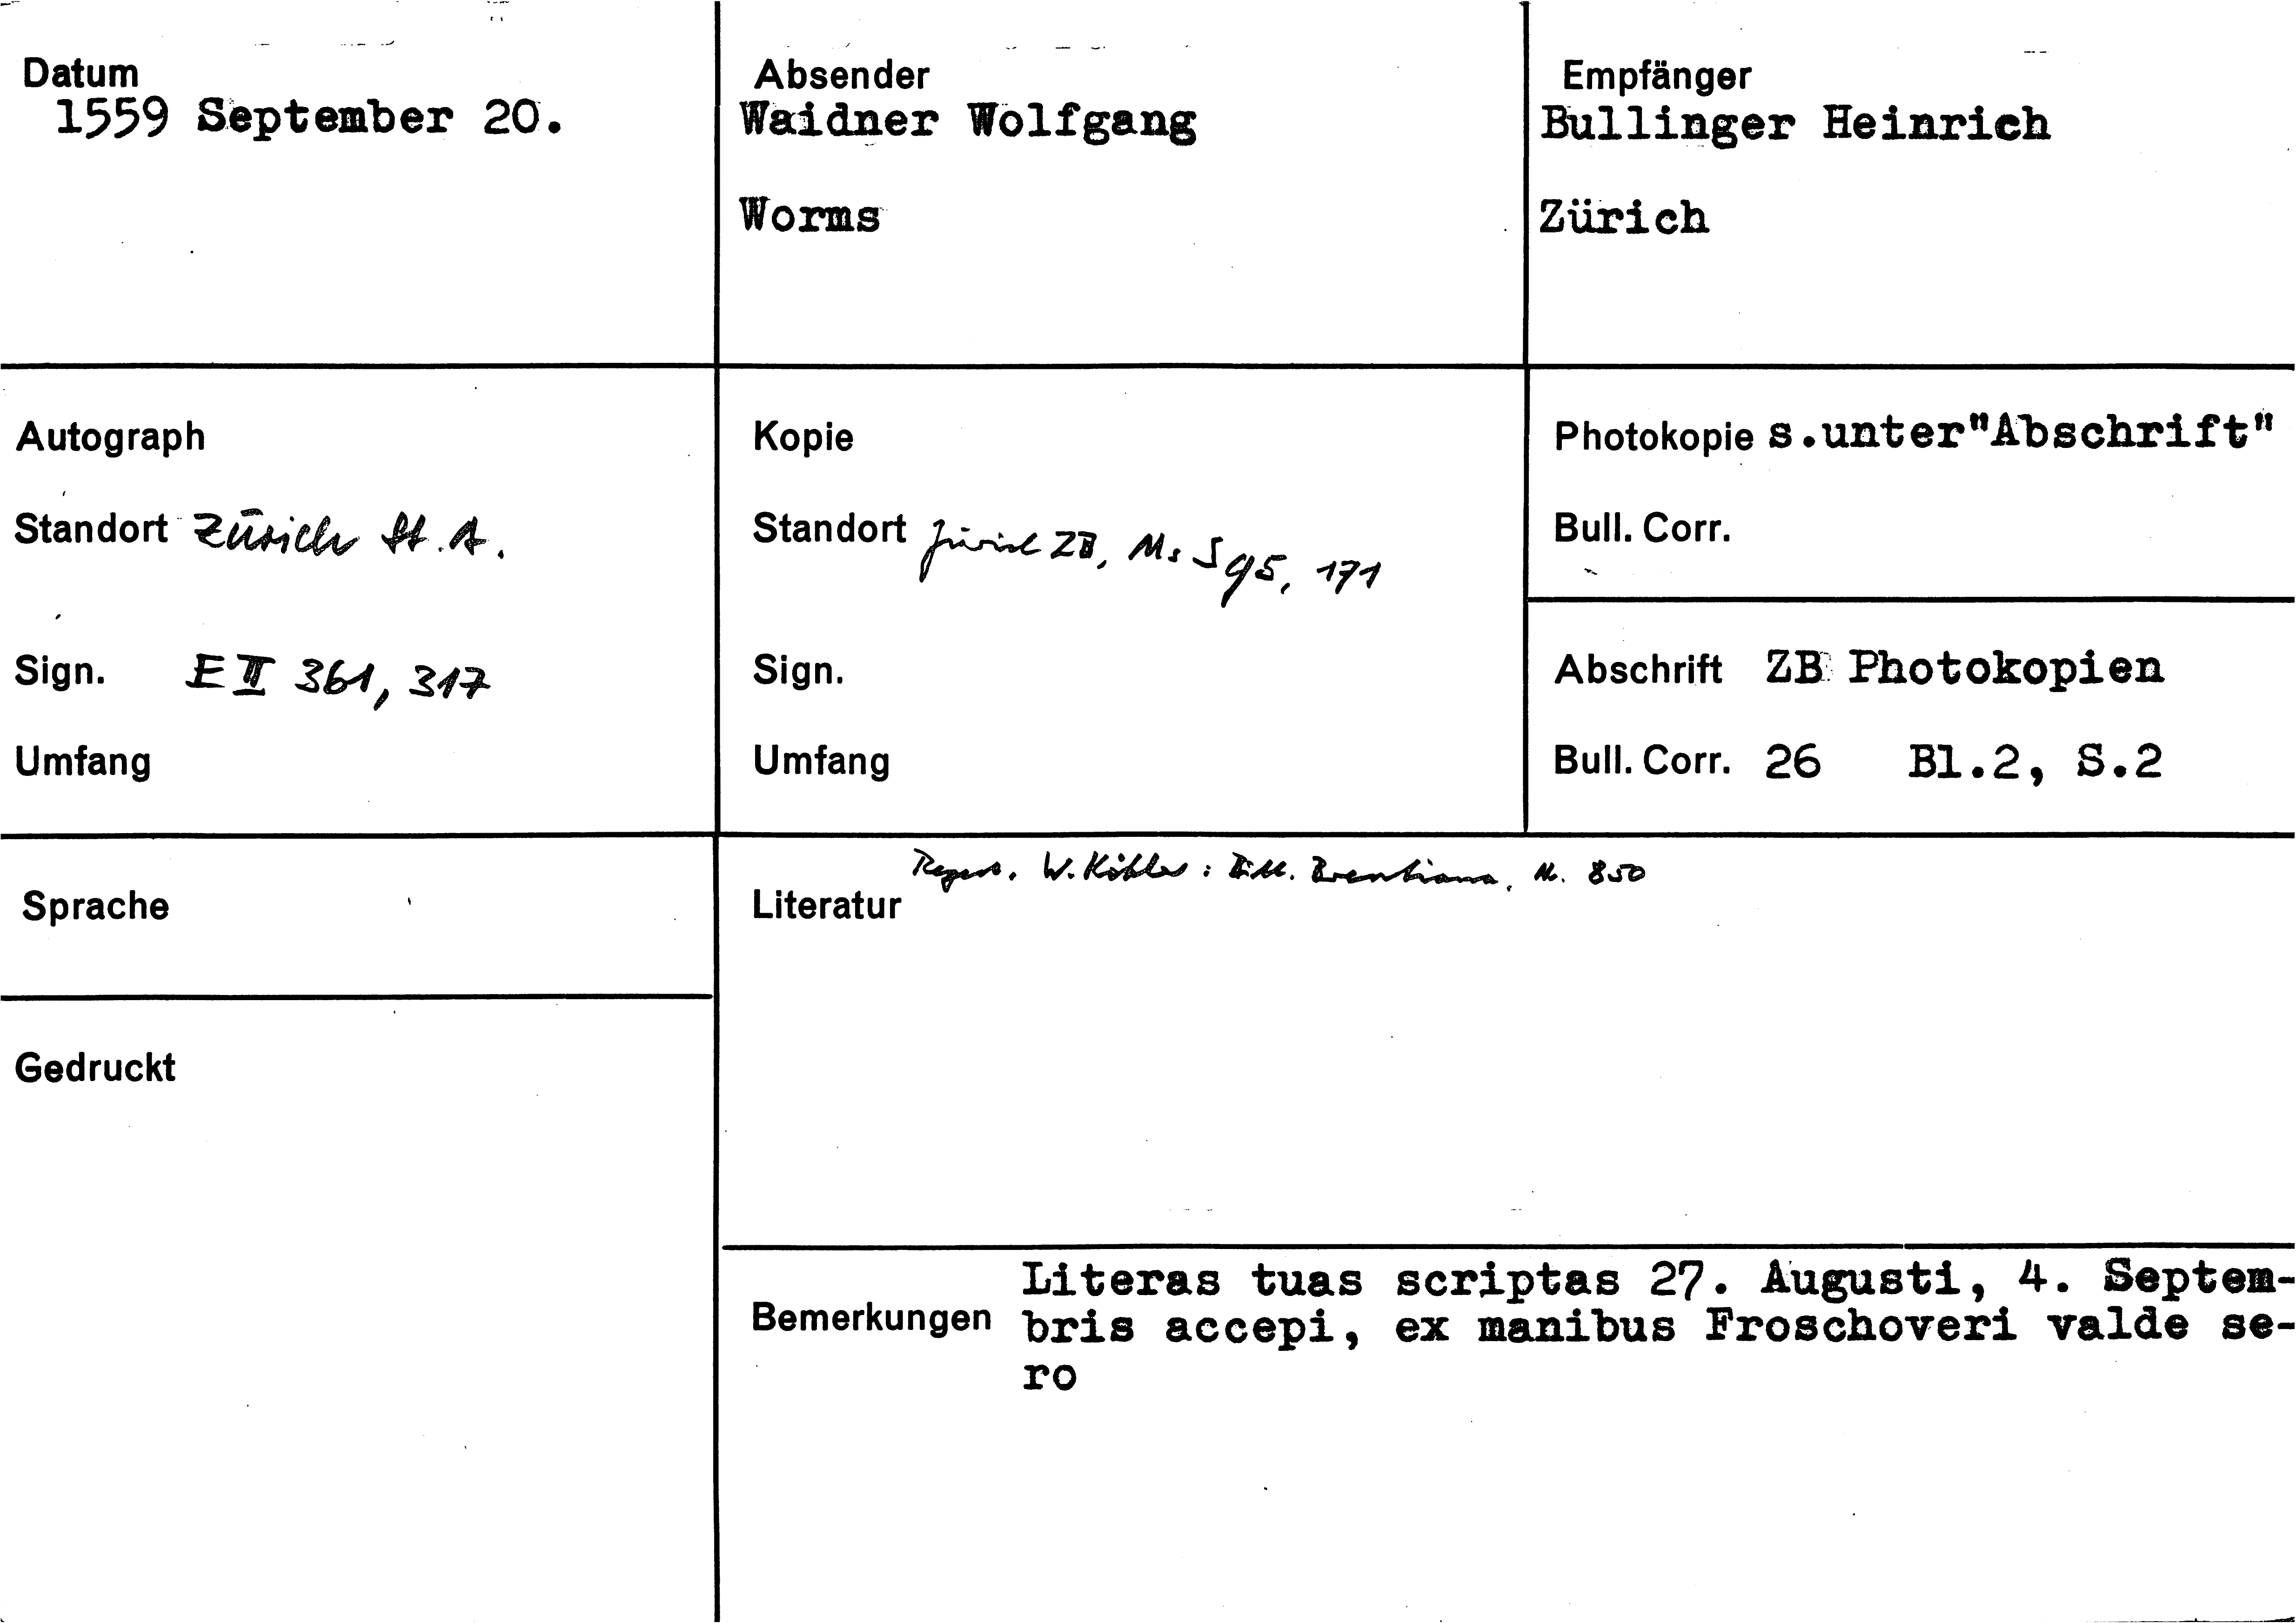 Datum
1559 September 20.
Absender
Waidner Wolfgang
Worms
Empfänger
Bullinger Heinrich
Zürich
Autograph
Standort Zürich St.A.
Sign. E II 361, 317
Umfang
Kopie
Standort Zürich ZB, Ms S 95, 171
Sign.
Umfang
Photokopie s.unter"Abschrift"
Bull. Corr.
Abschrift ZB Photokopien
Bull. Corr. 26 Bl.2, S.2
Sprache
Gedruckt
Literatur
Regest. W. Köhler: Bibl. Brentiana, Nr. 850
Bemerkungen
Literas tuas scriptas 27. Augusti, 4. Septem-
bris accepi, ex manibus Froschoveri valde se-
ro